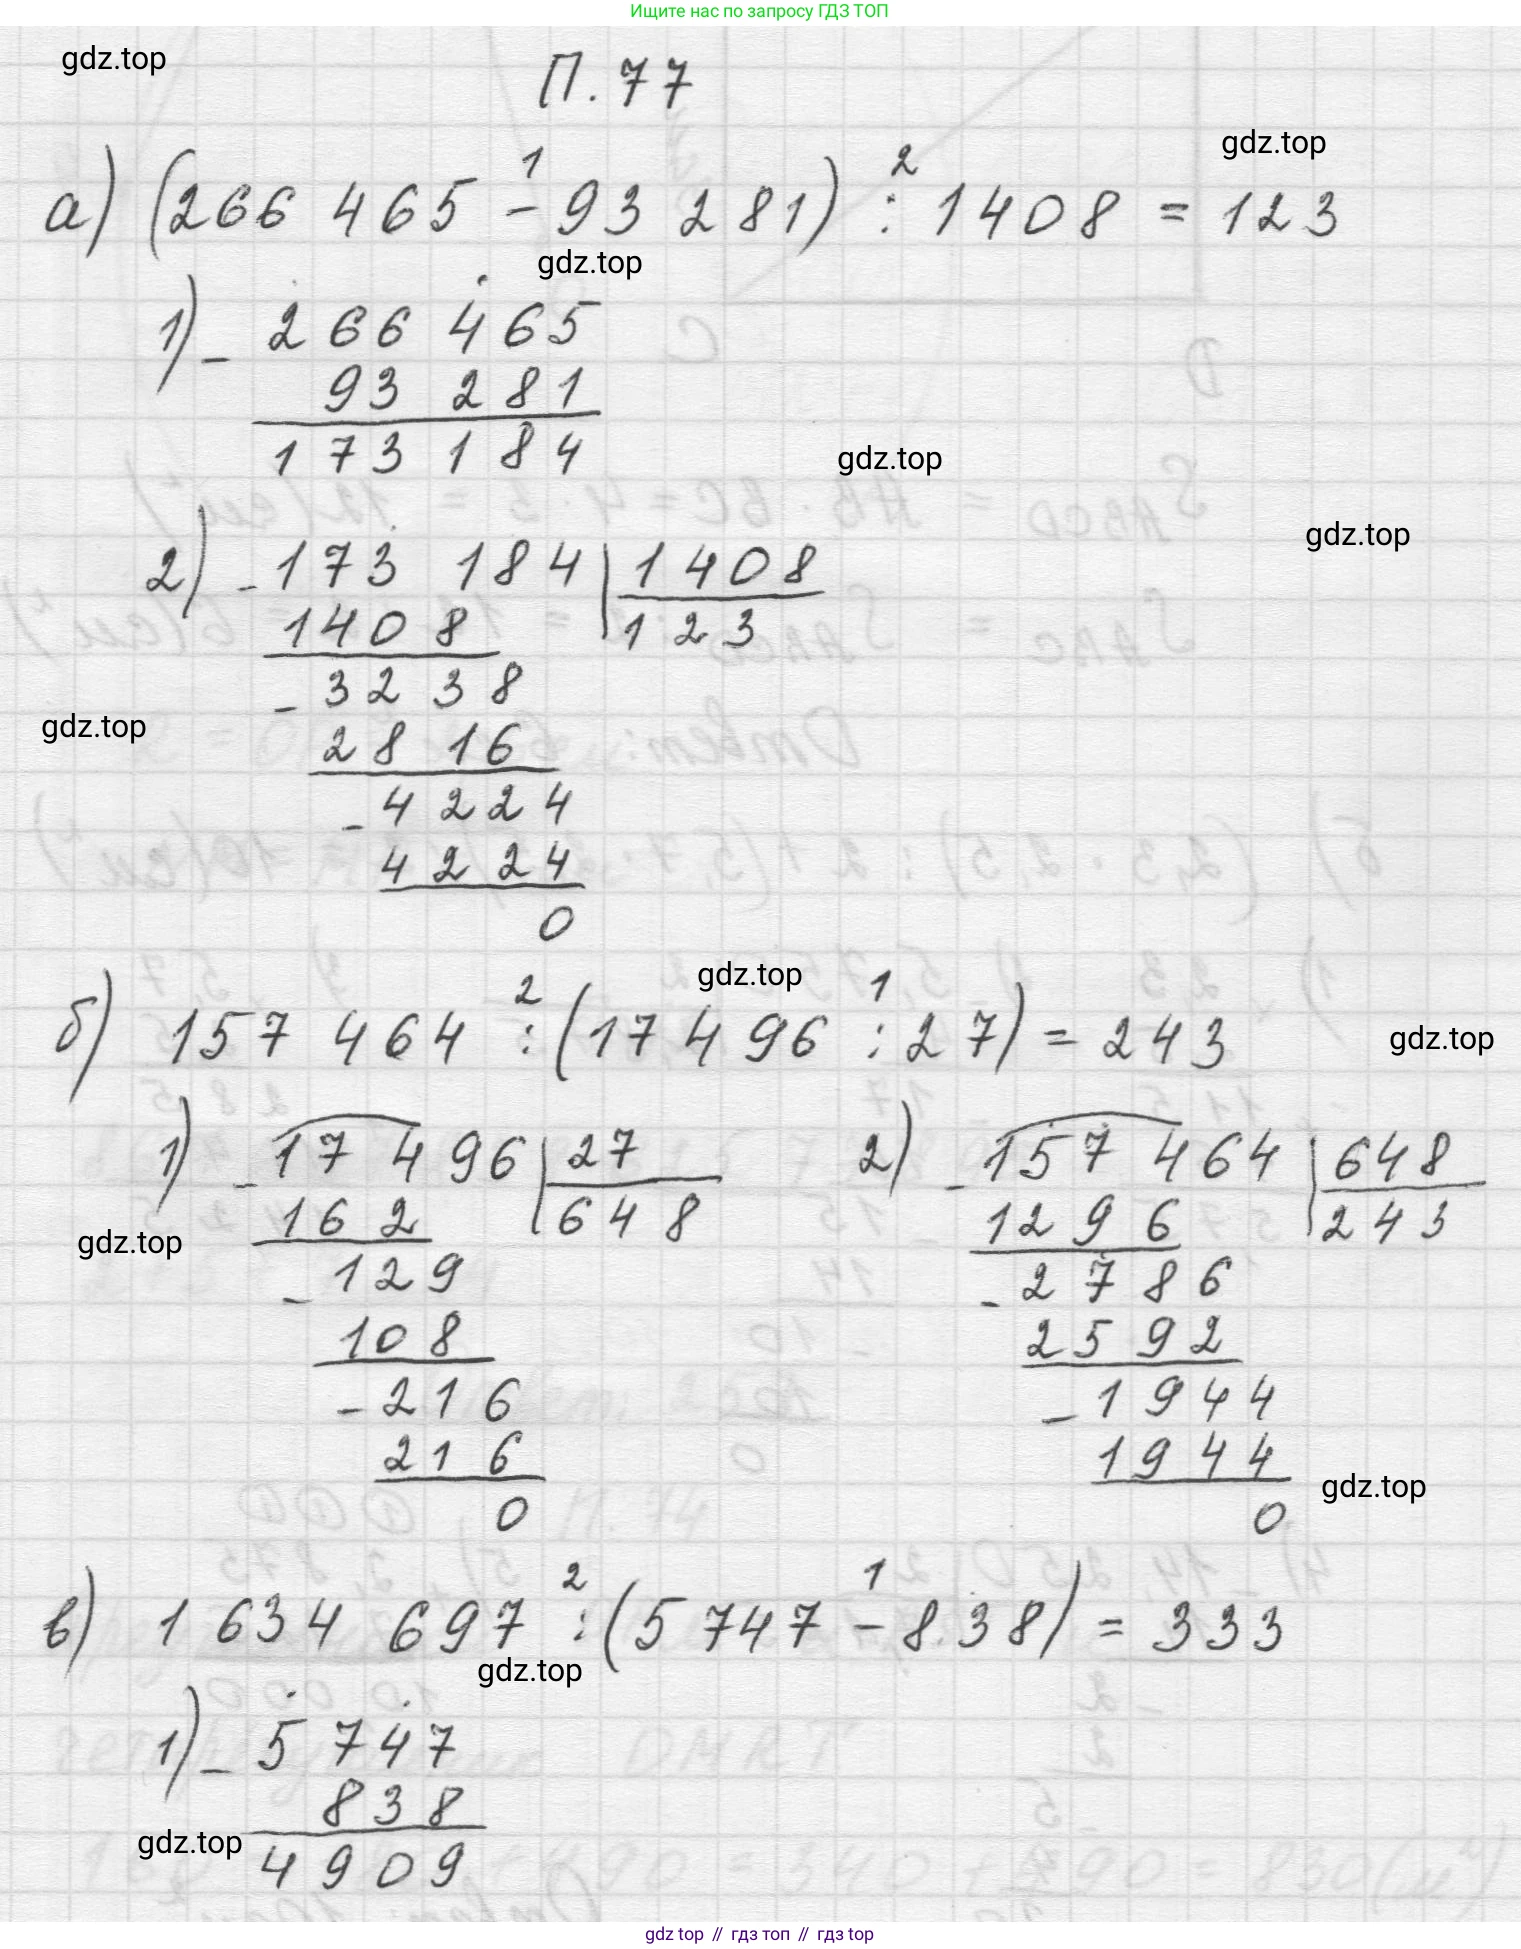 Ищите нас по запросу ГДЗ ТОП
gdz.top
П. 77
gdz.top
1 2
а) (266 465 - 93 281) : 1408 = 123
gdz.top
1) - 266 465
93 281
173 184
gdz.top
gdz.top
2) - 173 184 | 1408
1408 | 123
- 3238
gdz.top
2816
- 4224
4224
0
gdz.top
2 1
б) 157 464 : (17 496 : 27) = 243
gdz.top
1) - 17 496 | 27 2) - 157 464 | 648
162 | 648 1296 | 243
gdz.top
- 129 - 2786
108 2592
- 216 - 1944
216 1944
gdz.top
0 0
2 1
в) 1 634 697 : (5 747 - 838) = 333
gdz.top
1) - 5 747
838
gdz.top
4 909
gdz top // гдз топ // гдз top